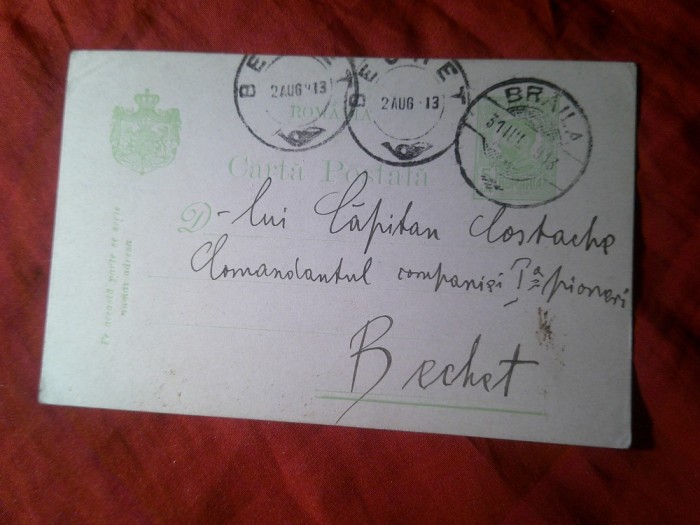 BECHET
2 AUG 913
BECHET
2 AUG 913
BRĂILA
ROMANIA
Carta Postala
D-lui Căpitan Costache
Comandantul companiei Iª pioneri
Bechet